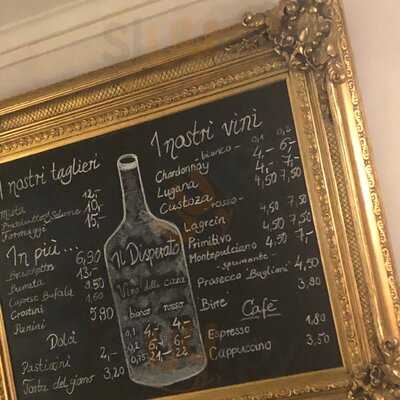 I nostri taglieri
Mista 12,-
Prosciutto/Salame 10,-
Formaggi 15,-
In più...
Bruschetta 6,90
Burrata 13,-
Caprese Bufala 9,50
Crostini 1,60
Panini 5,90
Dolci
Pasticcini 2,-
Torta del giorno 3,20
Il Disperato
Vino della casa
bianco rosso
0,1 4,- 4,-
0,2 6,- 6,-
0,75 21,- 22
I nostri vini
- bianco - 0,1 0,2
Chardonnay 4,- 6,-
Lugana 4,- 7,-
Custoza 4,50 7,50
- rosso -
Lagrein 4,50 7,50
Primitivo 4,50 7,50
Montepulciano 4,50 7,-
- spumante -
Prosecco "Bagliani" 4,50
Birre 3,80
Cafè
Espresso 1,80
Cappuccino 3,50